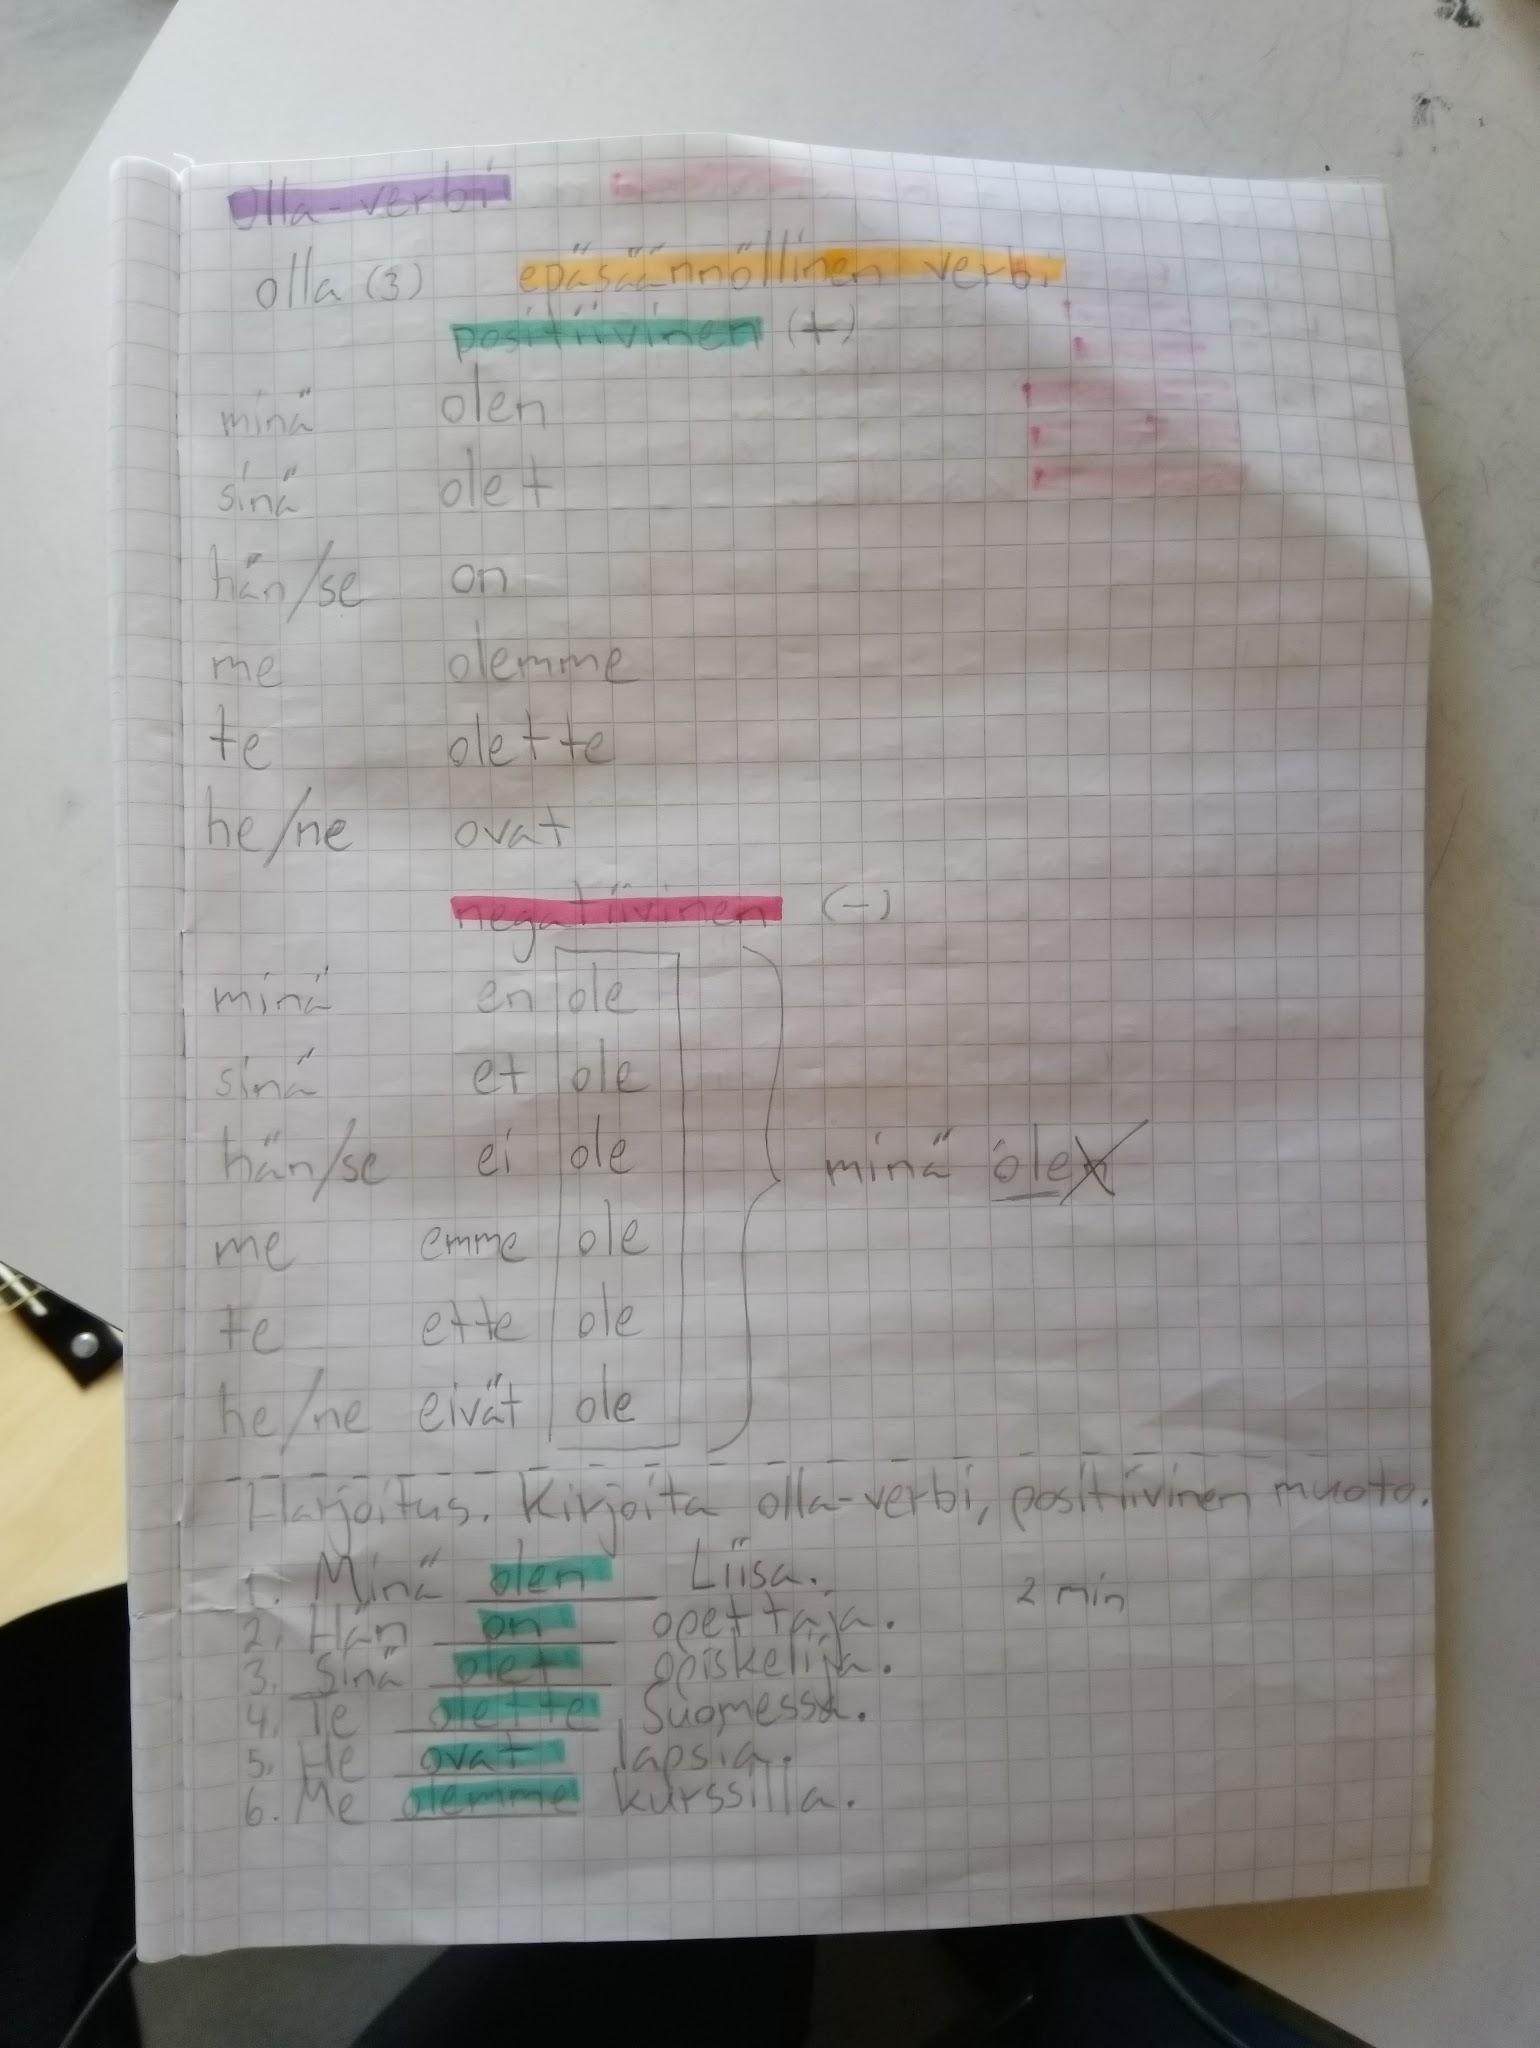 olla-verbi
olla (3) epäsäännöllinen verbi
positiivinen (+)
minä olen
sinä olet
hän/se on
me olemme
te olette
he/ne ovat
negatiivinen (-)
minä en ole
sinä et ole
hän/se ei ole
minä olen
me emme ole
te ette ole
he/ne eivät ole
Harjoitus. Kirjoita olla-verbi, positiivinen muoto.
1. Minä olen Liisa. 2 min
2. Hän on opettaja.
3. Sinä olet opiskelija.
4. Te olette Suomessa.
5. He ovat lapsia.
6. Me olemme kurssilla.